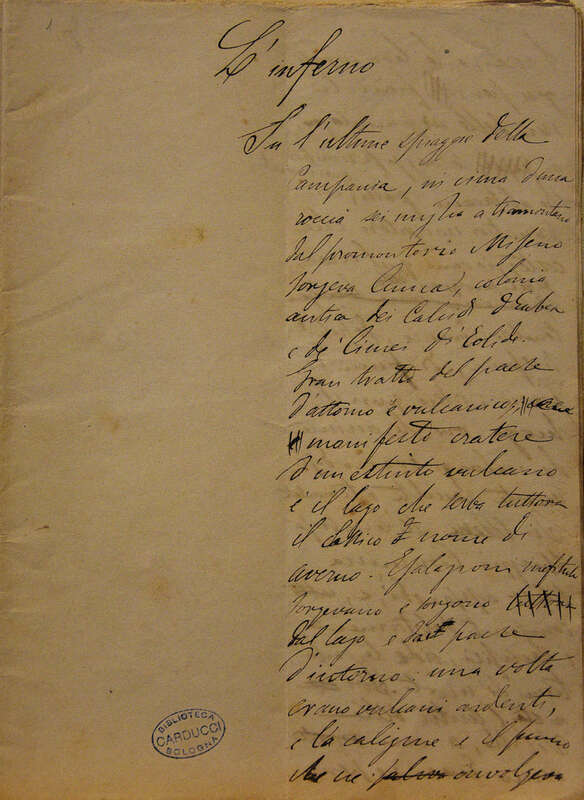 1
L'inferno
Su l'ultime spiagge della
Campania, in cima d'una
roccia sei miglia a tramontana
dal promontorio Miseno
sorgeva Cuma, colonia
antica dei Calcidi d'Eubea
e de' Cimei d'Eolide.
Gran tratto del paese
d'attorno è vulcanico,
manifesto cratere
d'un estinto vulcano
è il lago che serba tuttora
il classico nome di
averno. Esalazioni mefitiche
sorgevano e sorgono
dal lago e dal paese
d'intorno: una volta
erano vulcani ardenti,
e la caligine e il fumo
che ne salva involgeva
BIBLIOTECA
CARDUCCI
BOLOGNA